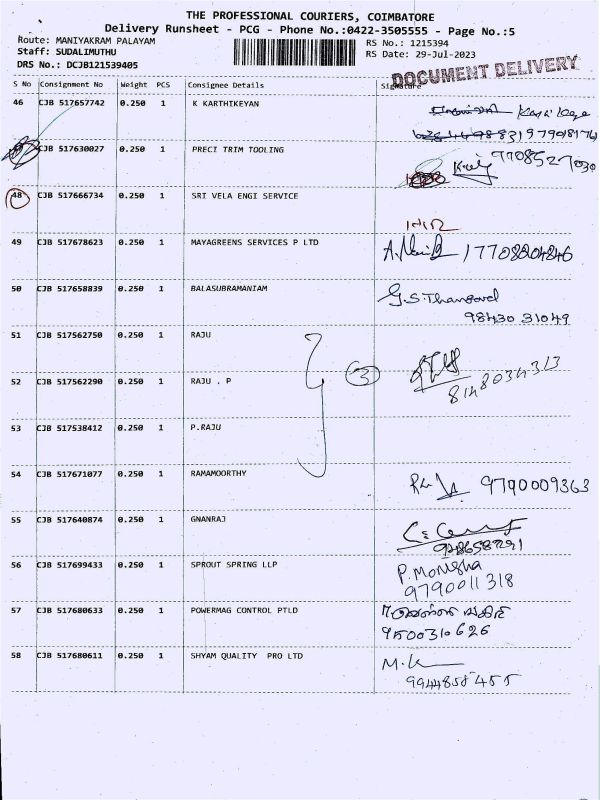 THE PROFESSIONAL COURIERS, COIMBATORE
Delivery Runsheet - PCG - Phone No.:0422-3505555 - Page No.:5
Route: MANIYAKRAM PALAYAM
Staff: SUDALIMUTHU
DRS No.: DCJB121539405
RS No.: 1215394
RS Date: 29-Jul-2023
DOCUMENT DELIVERY
S No Consignment No Weight PCS Consignee Details Signature
46 CJB 517657742 0.250 1 K KARTHIKEYAN
CJB 517630027 0.250 1 PRECI TRIM TOOLING
48 CJB 517666734 0.250 1 SRI VELA ENGI SERVICE
49 CJB 517678623 0.250 1 MAYAGREENS SERVICES P LTD
17708204846
50 CJB 517658839 0.250 1 BALASUBRAMANIAM G.S.Thangavel
98430 31049
51 CJB 517562750 0.250 1 RAJU
3
8148034313
52 CJB 517562290 0.250 1 RAJU . P
53 CJB 517538412 0.250 1 P.RAJU
54 CJB 517671077 0.250 1 RAMAMOORTHY 9790009363
55 CJB 517640874 0.250 1 GNANRAJ
56 CJB 517699433 0.250 1 SPROUT SPRING LLP P. Monisha
9790011318
57 CJB 517680633 0.250 1 POWERMAG CONTROL PTLD
9500310626
58 CJB 517680611 0.250 1 SHYAM QUALITY PRO LTD
9944858455